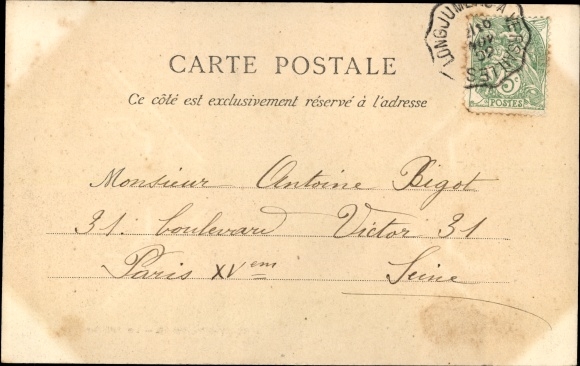 LONGJUMEAU A VERSAILLES
5c
POSTES
CARTE POSTALE
Ce côté est exclusivement réservé à l'adresse
Monsieur Antoine Bigot
31. boulevard Victor 31
Paris XVem
Seine